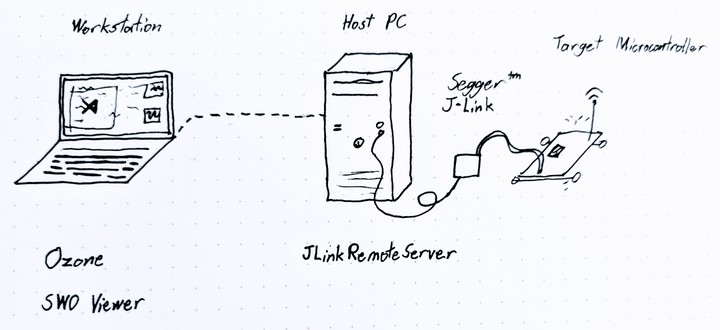 Workstation
Host PC
Target Microcontroller
Segger™
J-Link
Ozone
SWO Viewer
JLinkRemoteServer